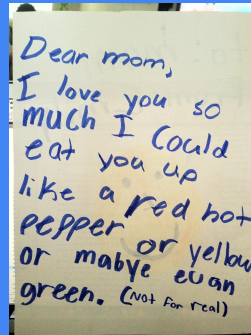 Dear mom,
I love you so
much I Could
eat you up
like a red hot
pepper or yellow
or mabye evan
green. (Not for real)